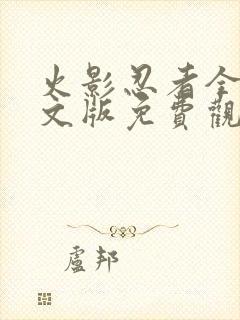 火影忍者全
文版免費觀
盧邦